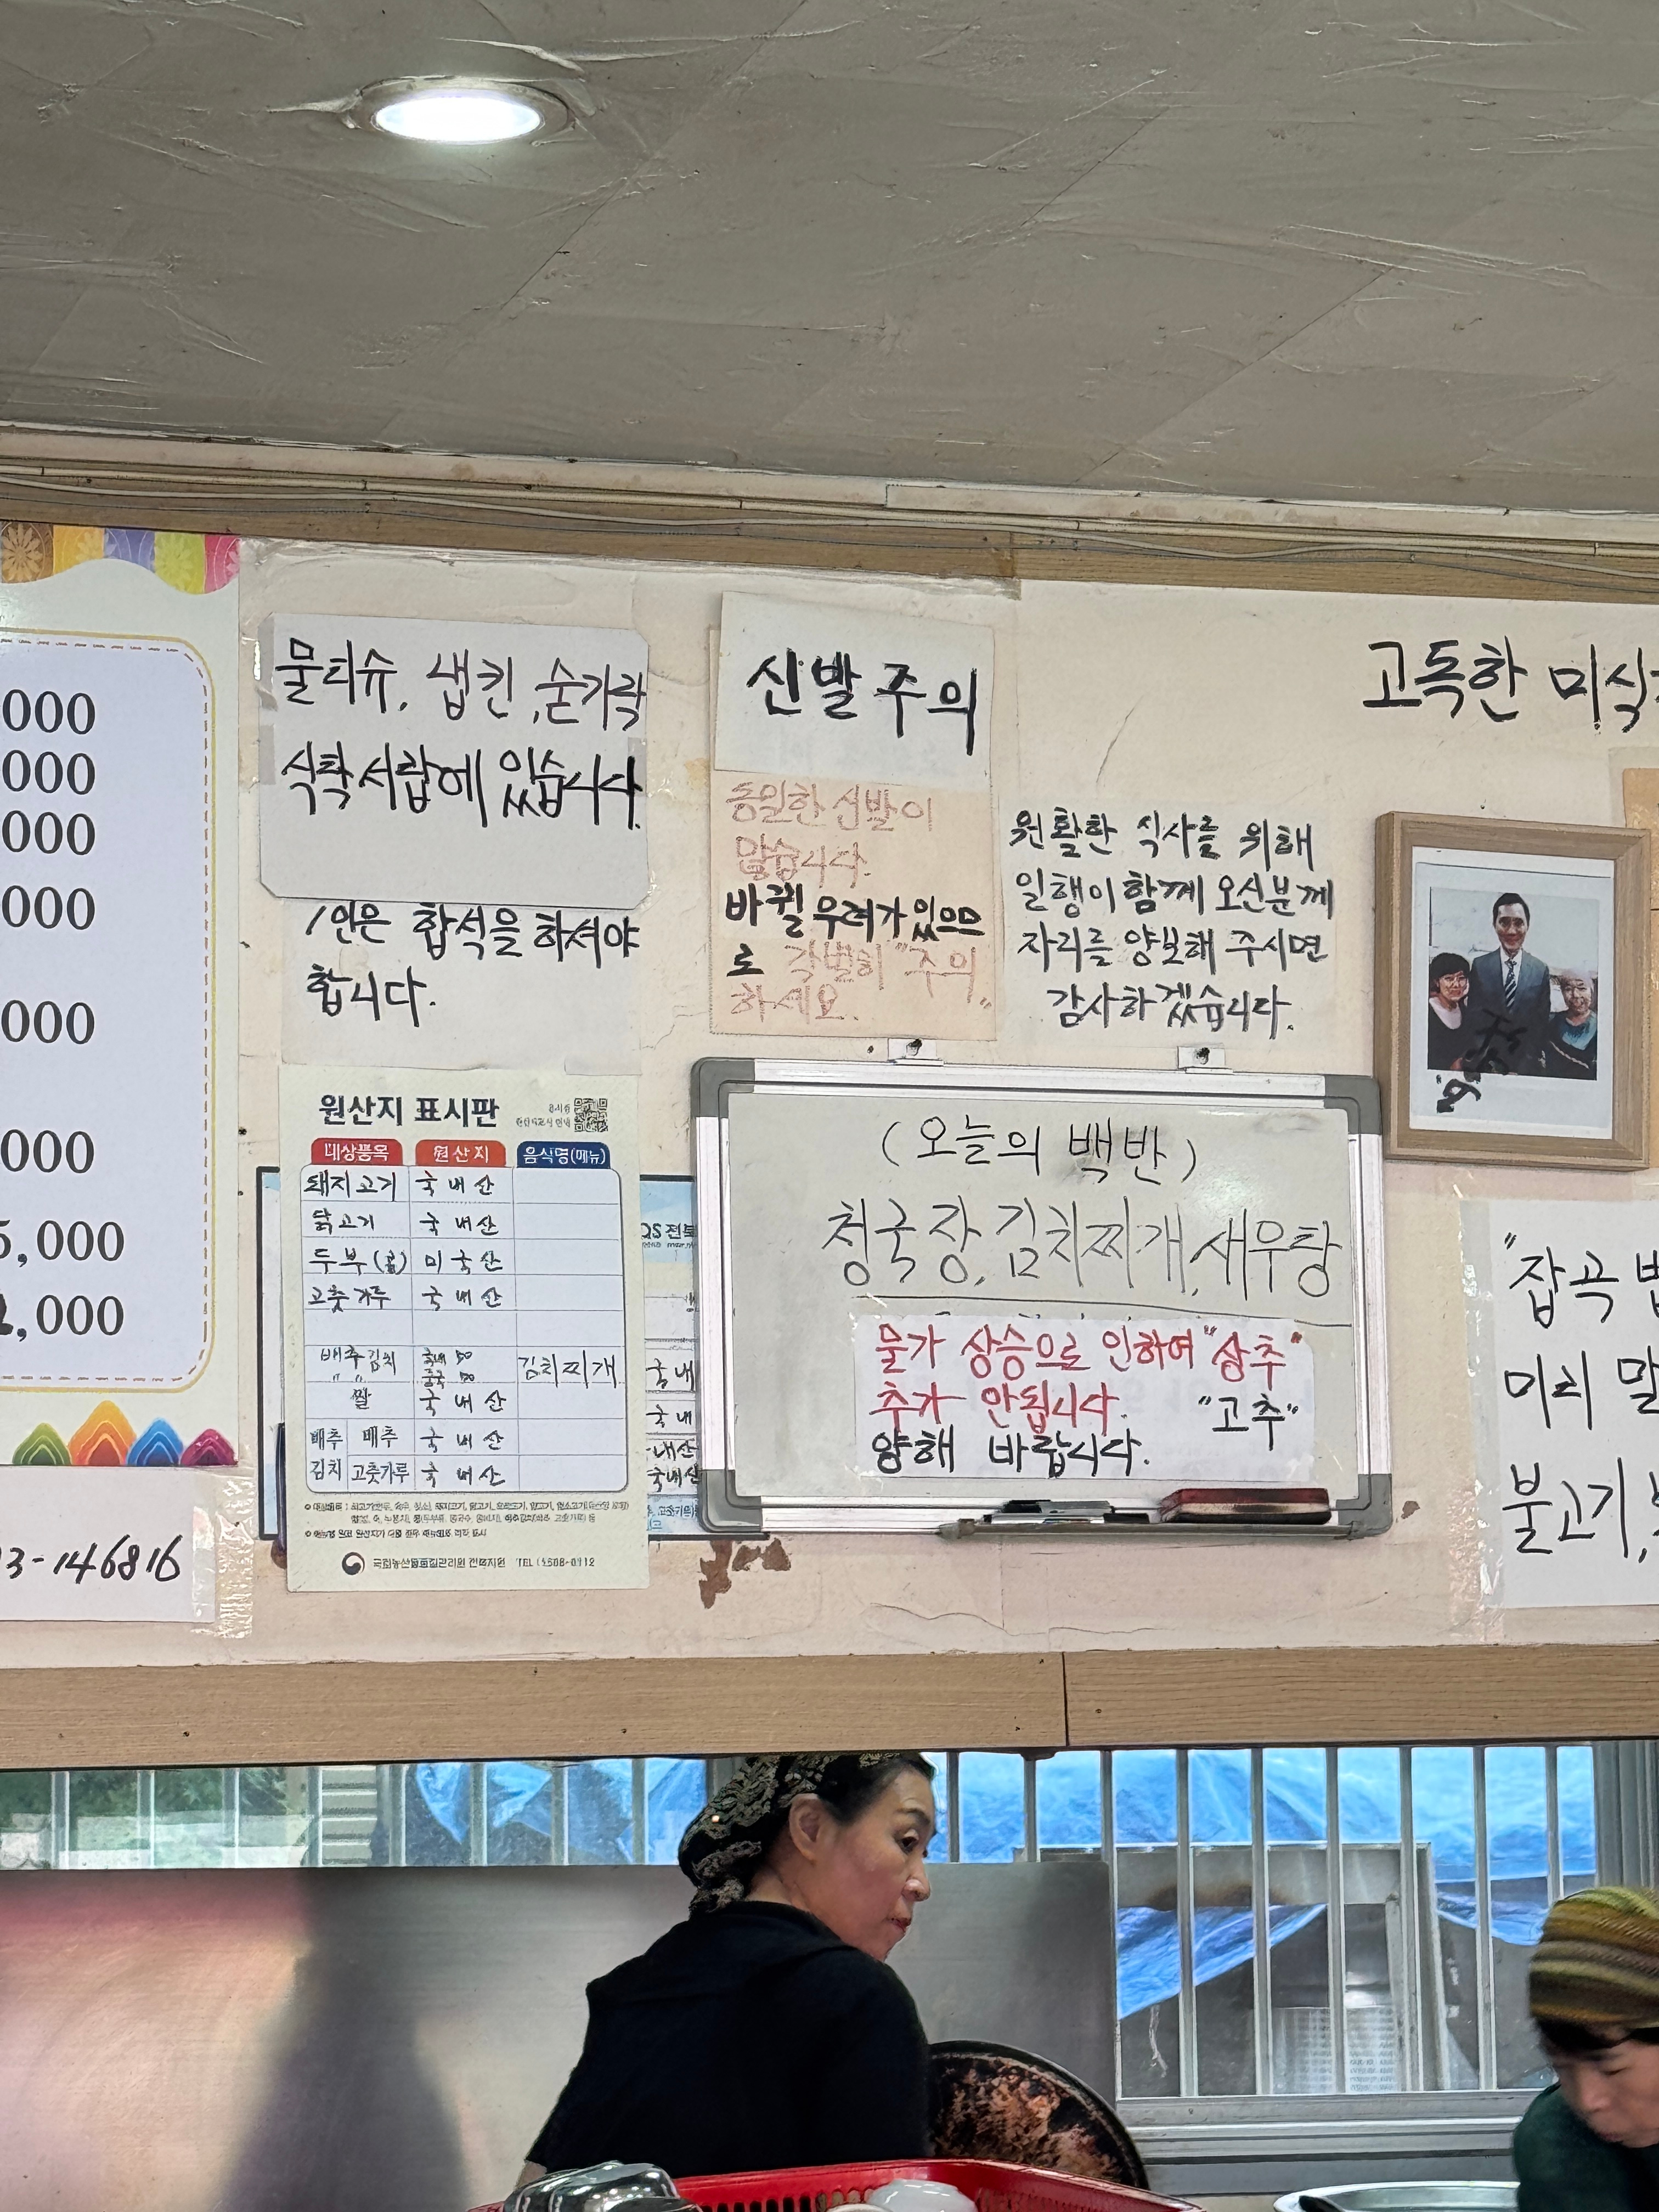 000
000
000
000
000
000
5,000
,000
3-146816
물티슈, 냅킨, 숟가락
식탁 서랍에 있습니다.
1인은 합석을 하셔야
합니다.
신발 주의
동일한 신발이
많습니다.
바뀔 우려가 있으므
로 각별히 "주의"
하세요.
원활한 식사를 위해
일행이 함께 오신분께
자리를 양보해 주시면
감사하겠습니다.
고독한 미식
원산지 표시판
대상품목 원산지 음식명(메뉴)
돼지고기 국내산
닭고기 국내산
두부(콩) 미국산
고춧가루 국내산
배추김치 국내 50 김치찌개
" " 중국 50
쌀 국내산
배추 배추 국내산
김치 고춧가루 국내산
국립농산물품질관리원 전북지원
QS 전북
국내
국내
내산
국내산
(오늘의 백반)
청국장, 김치찌개, 새우탕
물가 상승으로 인하여 "상추"
추가 안됩니다. "고추"
양해 바랍니다.
"잡곡
미리 말
불고기,